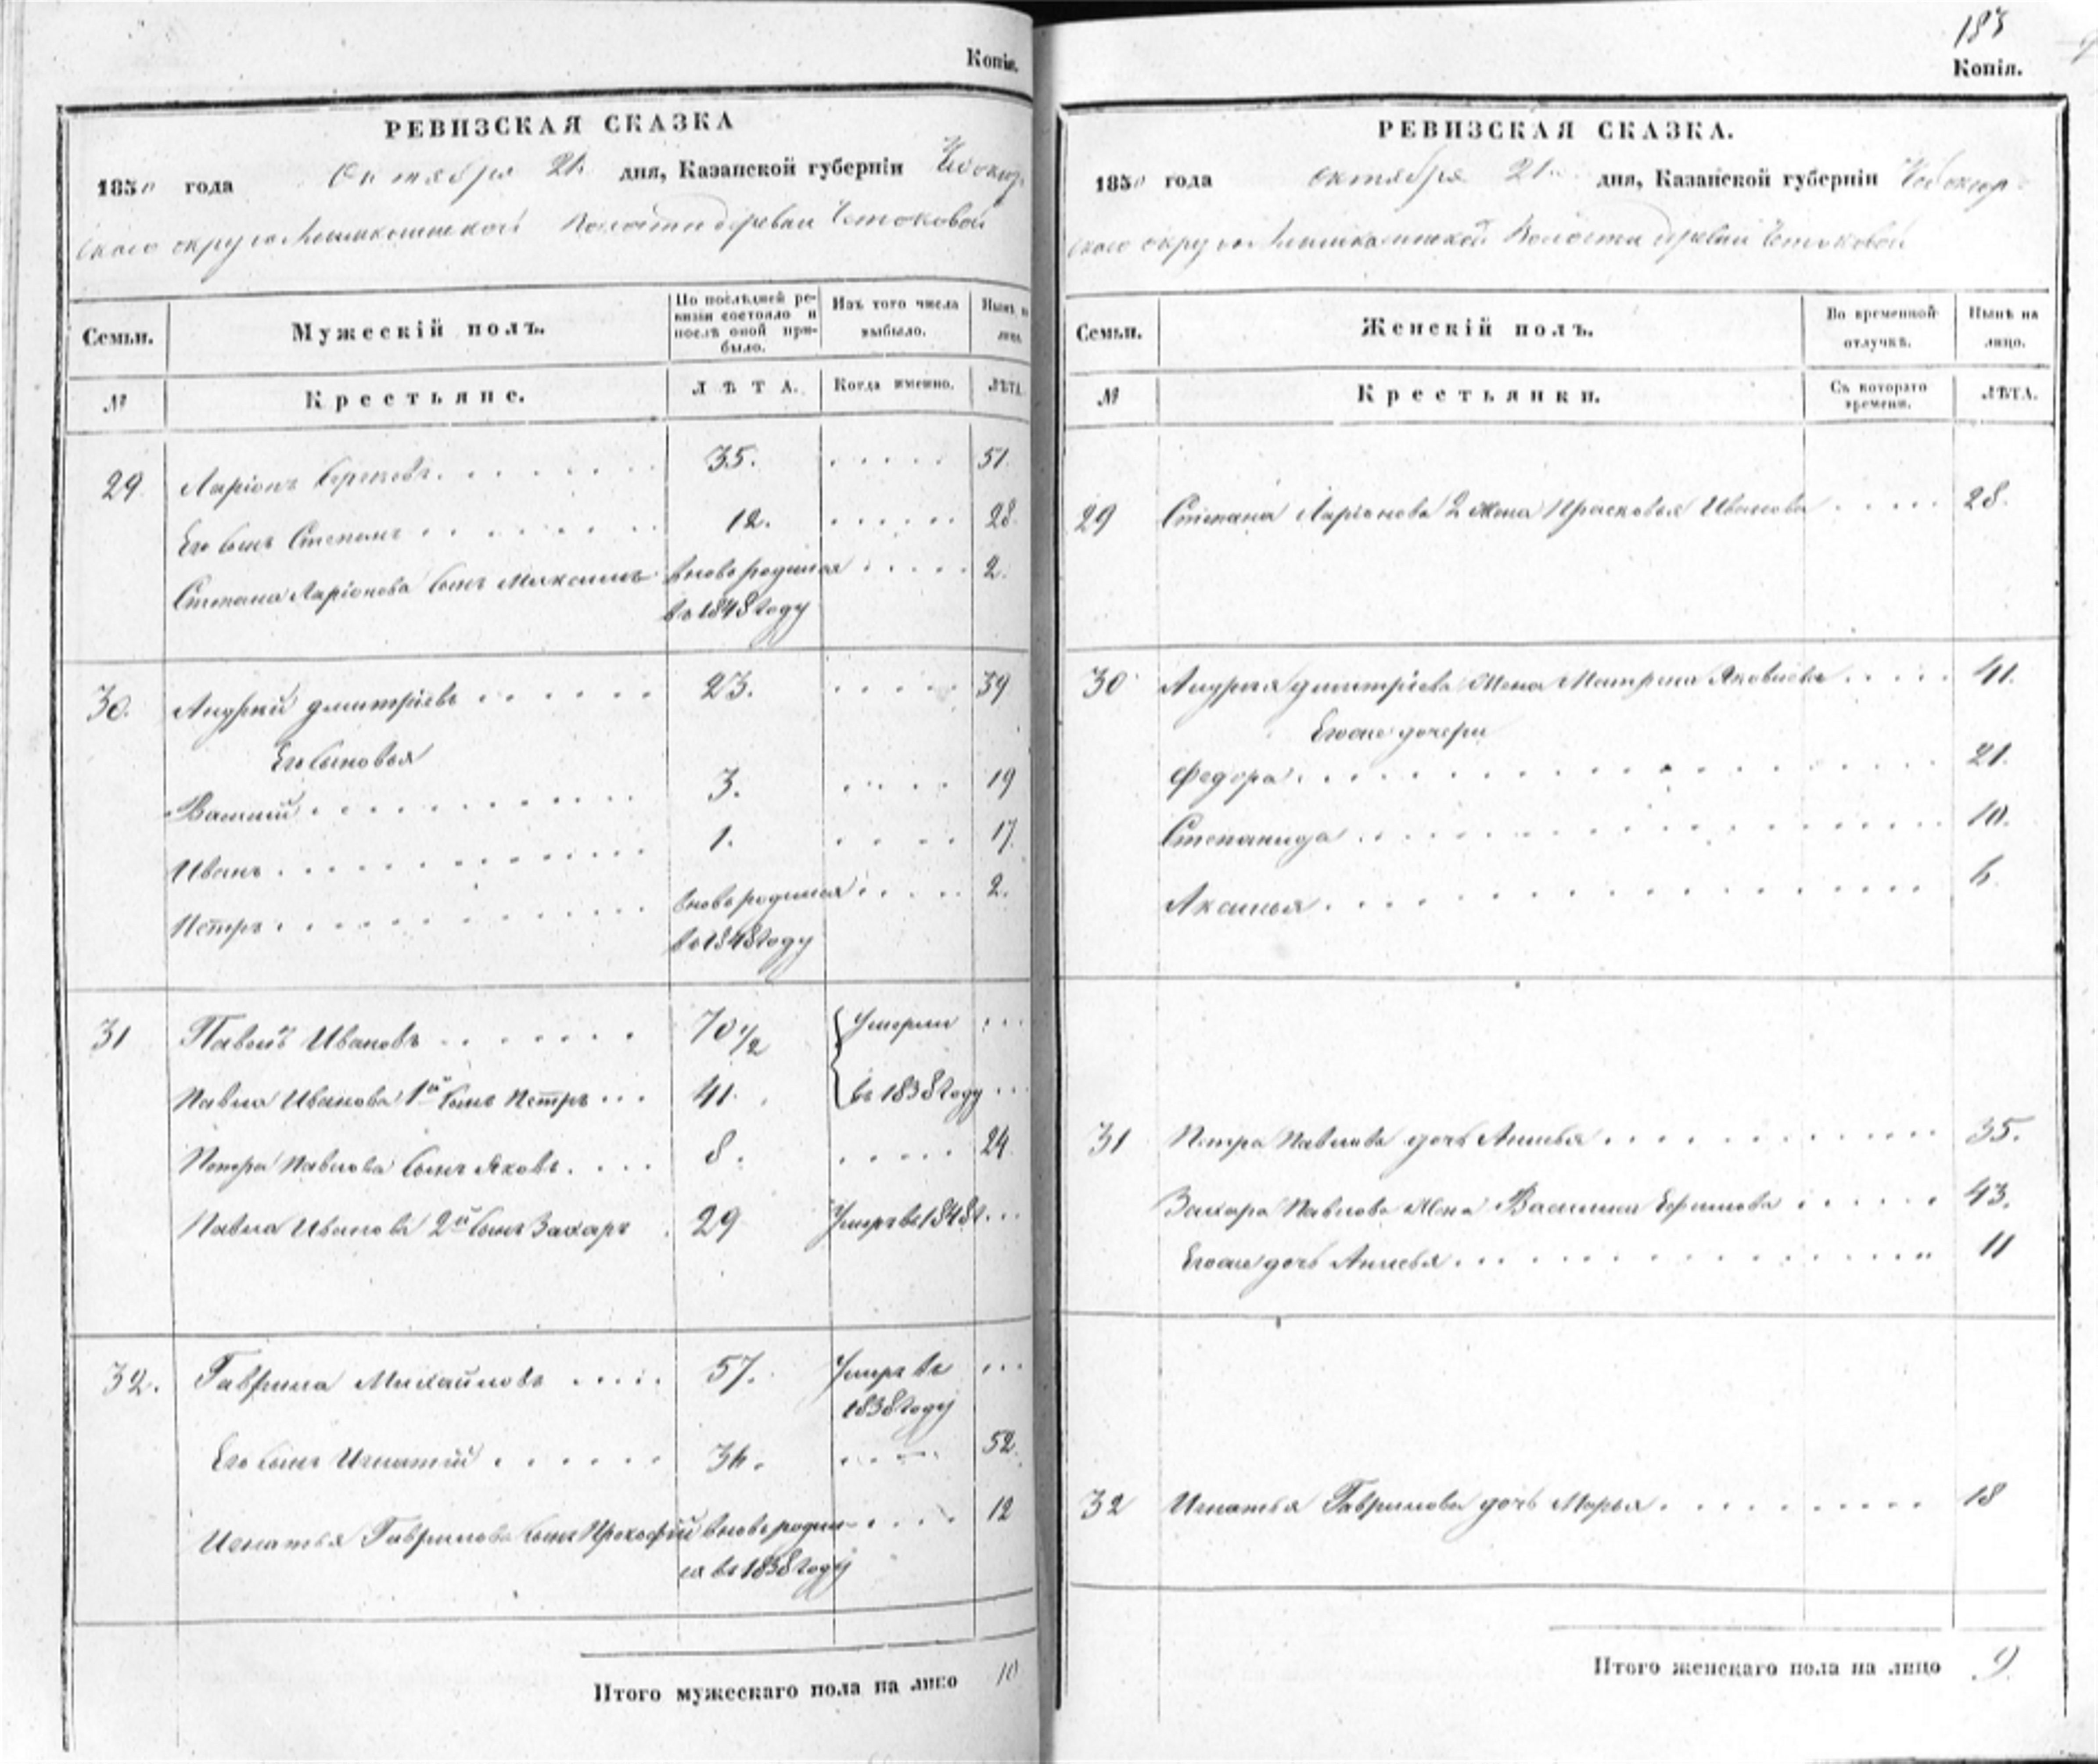 Копія.
РЕВИЗСКАЯ СКАЗКА
1850 года Октября 21 дня, Казанской губерніи Чебоксар-
скаго округа Волости деревни
Семьи.
Мужескій полъ.
По послѣдней ре-
визіи состояло и
послѣ оной при-
было.
Изъ того числа
выбыло.
Нынѣ на
лицо.
№
Крестьяне.
ЛѢТА.
Когда именно.
ЛѢТА.
29 Ларіонъ 35. 51.
Его сынъ Степанъ 12. 28.
Степана Ларіонова сынъ Максимъ вновь родился 2.
въ 1848 году
30. Андрей Дмитріевъ 23. 39
Его сыновья
Василій 3. 19
Иванъ 1. 17.
Петръ вновь родился 2.
въ 1848 году
31 Павелъ Ивановъ 70 1/2 Умерли
Павла Иванова 1й сынъ Петръ 41. въ 1838 году
Петра Павлова сынъ Яковъ 8. 24
Павла Иванова 2й сынъ Захаръ 29 Умеръ въ 1848 г.
32. Гаврила Михайловъ 57. Умеръ въ
1838 году
Его сынъ Игнатій 36. 52.
Игнатья Гаврилова сынъ Прокофій вновь родил- 12
ся въ 1838 году
Итого мужескаго пола на лицо 10
183
Копія.
РЕВИЗСКАЯ СКАЗКА.
1850 года октября 21 дня, Казанской губерніи Чебоксар-
скаго округа Волости деревни
Семьи.
Женскій полъ.
Во временной
отлучкѣ.
Нынѣ на
лицо.
№
Крестьянки.
Съ котораго
времени.
ЛѢТА.
29 Степана Ларіонова 2 жена Прасковья Иванова 28.
30 Андрея Дмитріева жена Матрена Яковлева 41.
Егоже дочери
Федора 21.
Степанида 10.
Аксинья 6.
31 Петра Павлова дочь Анисья 35.
Захара Павлова жена Василиса Ефимова 43.
Егоже дочь Анисья 11
32 Игнатья Гаврилова дочь Марья 18
Итого женскаго пола на лицо 9